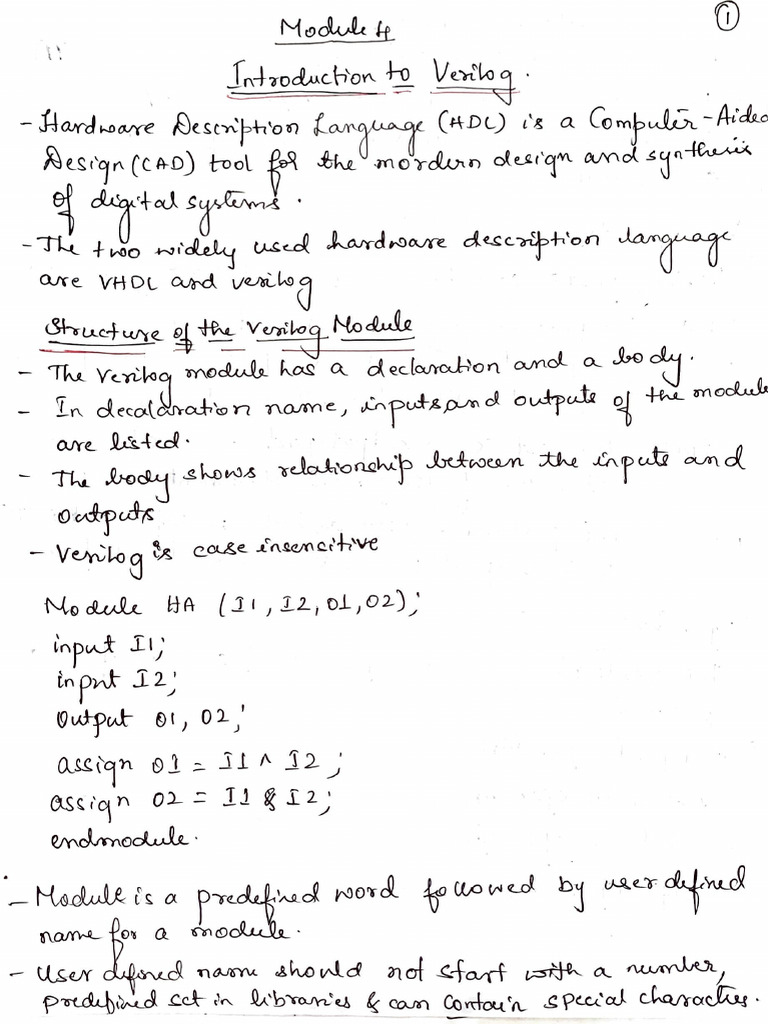 1
Module 4
Introduction to Verilog.
- Hardware Description Language (HDL) is a Computer-Aided
Design (CAD) tool for the mordern design and synthesis
of digital systems.
- The two widely used hardware description language
are VHDL and verilog
Structure of the Verilog Module
- The Verilog module has a declaration and a body.
- In decaldaration name, inputs, and outputs of the module
are listed.
- The body shows relationship between the inputs and
outputs
- Verilog is case insencitive
Module HA (I1, I2, O1, O2);
input I1;
input I2;
Output O1, O2;
assign O1 = I1 ^ I2;
assign O2 = I1 & I2;
endmodule.
- Module is a predefined word followed by user defined
name for a module.
- User defined name should not start with a number,
predefined set in libraries & can contain special characters.